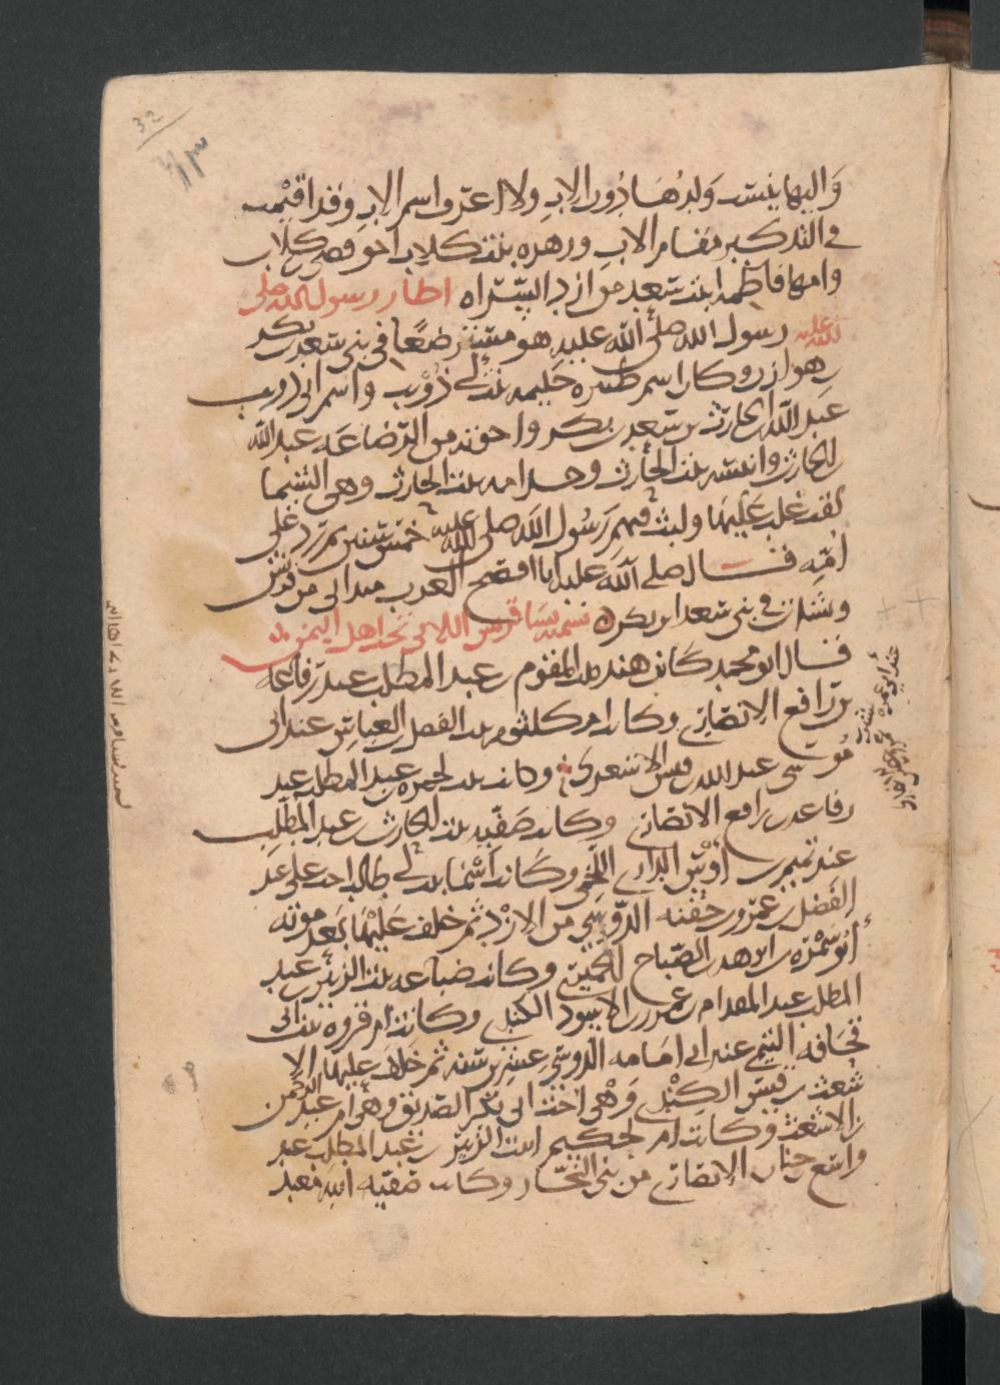 32
واليها ينسب ولدها دون الاب ولا اعرف اسم الاب وقد اقيمت
في التذكير مقام الاب وزهرة بنت كلاب اخو قصي بن كلاب
وامها فاطمة ابنت سعد من ازد السراه اظار رسول الله صلى
الله عليه رسول الله صلى الله عليه هو مسترضعا في بني سعد بن بكر
بن هوازن وكان اسم ظئره حليمه بنت ابي ذؤيب واسم ابي ذويب
عبد الله بن الحارث بن سعد بن بكر واخوته من الرضاعه عبد الله
بن الحارث وانيسه بنت الحارث وحدامه بنت الحارث وهي الشيما
لقب غلب عليها ولبث فيهم رسول الله صلى الله عليه خمس سنين ثم رد على
امه قال صلى الله عليه انا افصح العرب ميد اني من قريش
ونشات في بني سعد بن بكر تسميه نسا قريش اللاتي تحت اهل اليمن
قال ابو محمد كانت هند بنت المقوم بن عبد المطلب عند رفاعه
بن رافع الانصاري وكان ام كلثوم بنت الفضل بن العباس عند ابي
موسى عبد الله بن قيس الاشعري وكانت بنت لحمزه بن عبد المطلب عند
رفاعه بن رافع الانصاري وكانت صفيه بنت الحارث بن عبد المطلب
عند تميم بن اوس الداري اللخمي وكانت اسما بنت ابي طالب احد على عند
الفضل بن عمرو بن حفنه الدوسي من الازد ثم خلف عليها بعد موته
ابو سمره بن ابرهه بن الصباح الحميري وكانت ضباعه بنت الزبير بن عبد
المطلب عند المقدام بن عمرو بن الاسود الكندي وكانت ام فروه بنت ابي
قحافه التيمي عند ابي امامه الدوسي عشرين سنه ثم خلف عليها الا
شعث بن قيس الكندي وهي اخت ابي بكر الصديق وهي ام عبد الرحمن
بن الاشعث وكانت ام حكيم ابنت الزبير بن عبد المطلب عند
واسع بن حبان الانصاري من بني النجار وكانت صفيه ابنه معبد